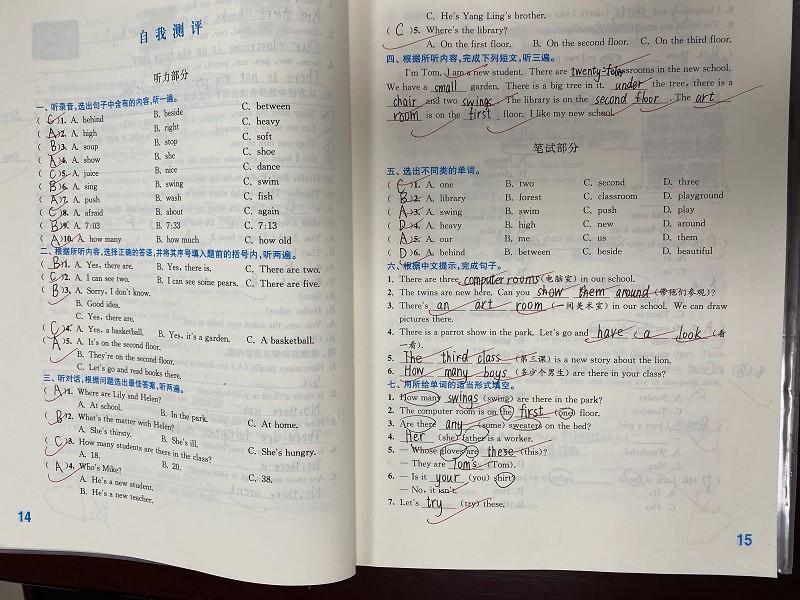 自我测评
听力部分
一、听录音,选出句子中含有的内容,听一遍。
( C )1. A. behind B. beside C. between
( A )2. A. high B. right C. heavy
( B )3. A. soup B. stop C. soft
( A )4. A. show B. she C. shoe
( C )5. A. juice B. nice C. dance
( B )6. A. sing B. swing C. swim
( A )7. A. push B. wash C. fish
( C )8. A. afraid B. about C. again
( B )9. A. 7:03 B. 7:33 C. 7:13
( A )10. A. how many B. how much C. how old
二、根据所听内容,选择正确的答语,并将其序号填入题前的括号内,听两遍。
( B )1. A. Yes, there are. B. Yes, there is. C. There are two.
( C )2. A. I can see two. B. I can see some pears. C. There are five.
( B )3. A. Sorry, I don't know.
B. Good idea.
C. Yes, there are.
( C )4. A. Yes, a basketball. B. Yes, it's a garden. C. A basketball.
( A )5. A. It's on the second floor.
B. They're on the second floor.
C. Let's go and read books there.
三、听对话,根据问题选出最佳答案,听两遍。
( A )1. Where are Lily and Helen?
A. At school. B. In the park. C. At home.
( B )2. What's the matter with Helen?
A. She's thirsty. B. She's ill. C. She's hungry.
( C )3. How many students are there in the class?
A. 18. B. 20. C. 38.
( A )4. Who's Mike?
A. He's a new student.
B. He's a new teacher.
14
C. He's Yang Ling's brother.
( C )5. Where's the library?
A. On the first floor. B. On the second floor. C. On the third floor.
四、根据所听内容,完成下列短文,听三遍。
I'm Tom. I am a new student. There are twenty-four classrooms in the new school.
We have a small garden. There is a big tree in it. under the tree, there is a
chair and two swings. The library is on the second floor. The art
room is on the first floor. I like my new school.
笔试部分
五、选出不同类的单词。
( C )1. A. one B. two C. second D. three
( B )2. A. library B. forest C. classroom D. playground
( A )3. A. swing B. swim C. push D. play
( D )4. A. heavy B. high C. new D. around
( A )5. A. our B. me C. us D. them
( D )6. A. behind B. between C. beside D. beautiful
六、根据中文提示,完成句子。
1. There are three computer rooms (电脑室) in our school.
2. The twins are new here. Can you show them around (带他们参观)?
3. There's an art room (一间美术室) in our school. We can draw
pictures there.
4. There is a parrot show in the park. Let's go and have a look (看
一看).
5. The third class (第三课) is a new story about the lion.
6. How many boys (多少个男生) are there in your class?
七、用所给单词的适当形式填空。
1. How many swings (swing) are there in the park?
2. The computer room is on the first (one) floor.
3. Are there any (some) sweaters on the bed?
4. Her (she) father is a worker.
5. — Whose gloves are these (this)?
— They are Tom's (Tom).
6. — Is it your (you) shirt?
— No, it isn't.
7. Let's try (try) these.
15